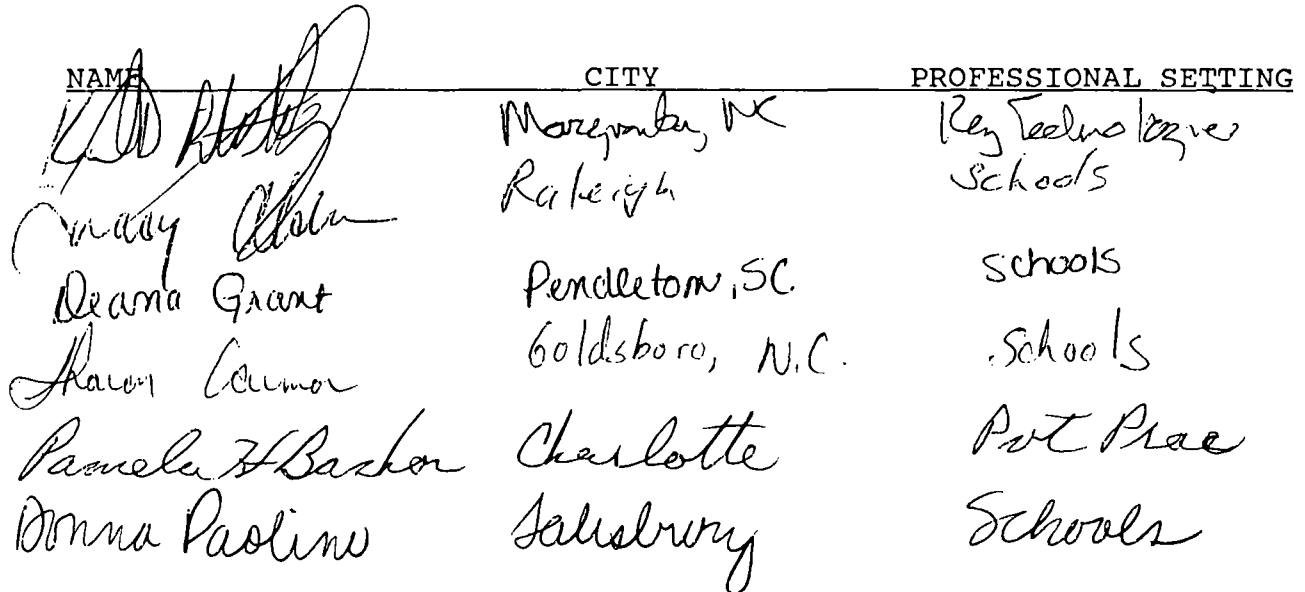 NAME CITY PROFESSIONAL SETTING
NC Key Technologies
Raleigh Schools
Deana Grant Pendleton, SC. schools
Sharon Goldsboro, N.C. Schools
Pamela H Barker Charlotte Pvt Prac
Donna Paolino Salisbury Schools